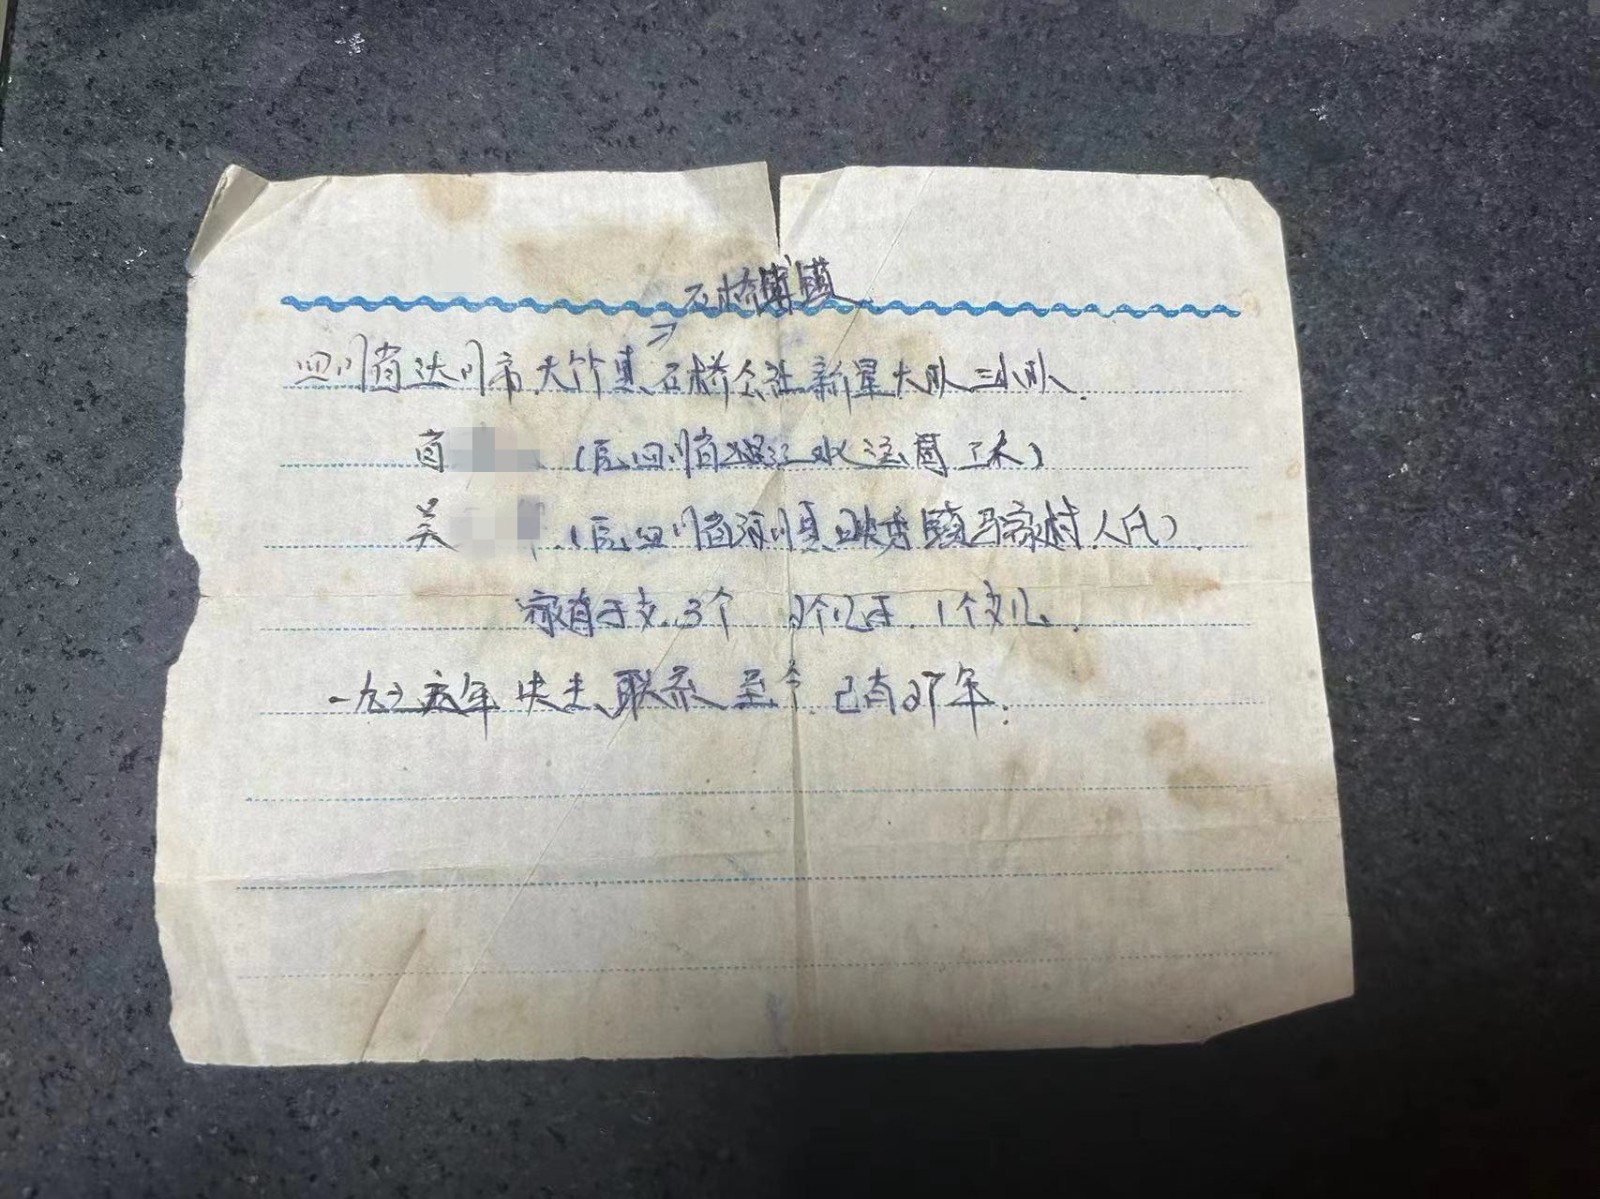 石桥铺镇
四川省达川市大竹县石桥公社新星大队三小队.
肖 (原四川省岷江水运局工木)
吴 (原四川省汶川县映秀镇马家村人氏).
家有子女.3个 2个儿子.1个女儿.
一九 年失去联系至今.已有27年.